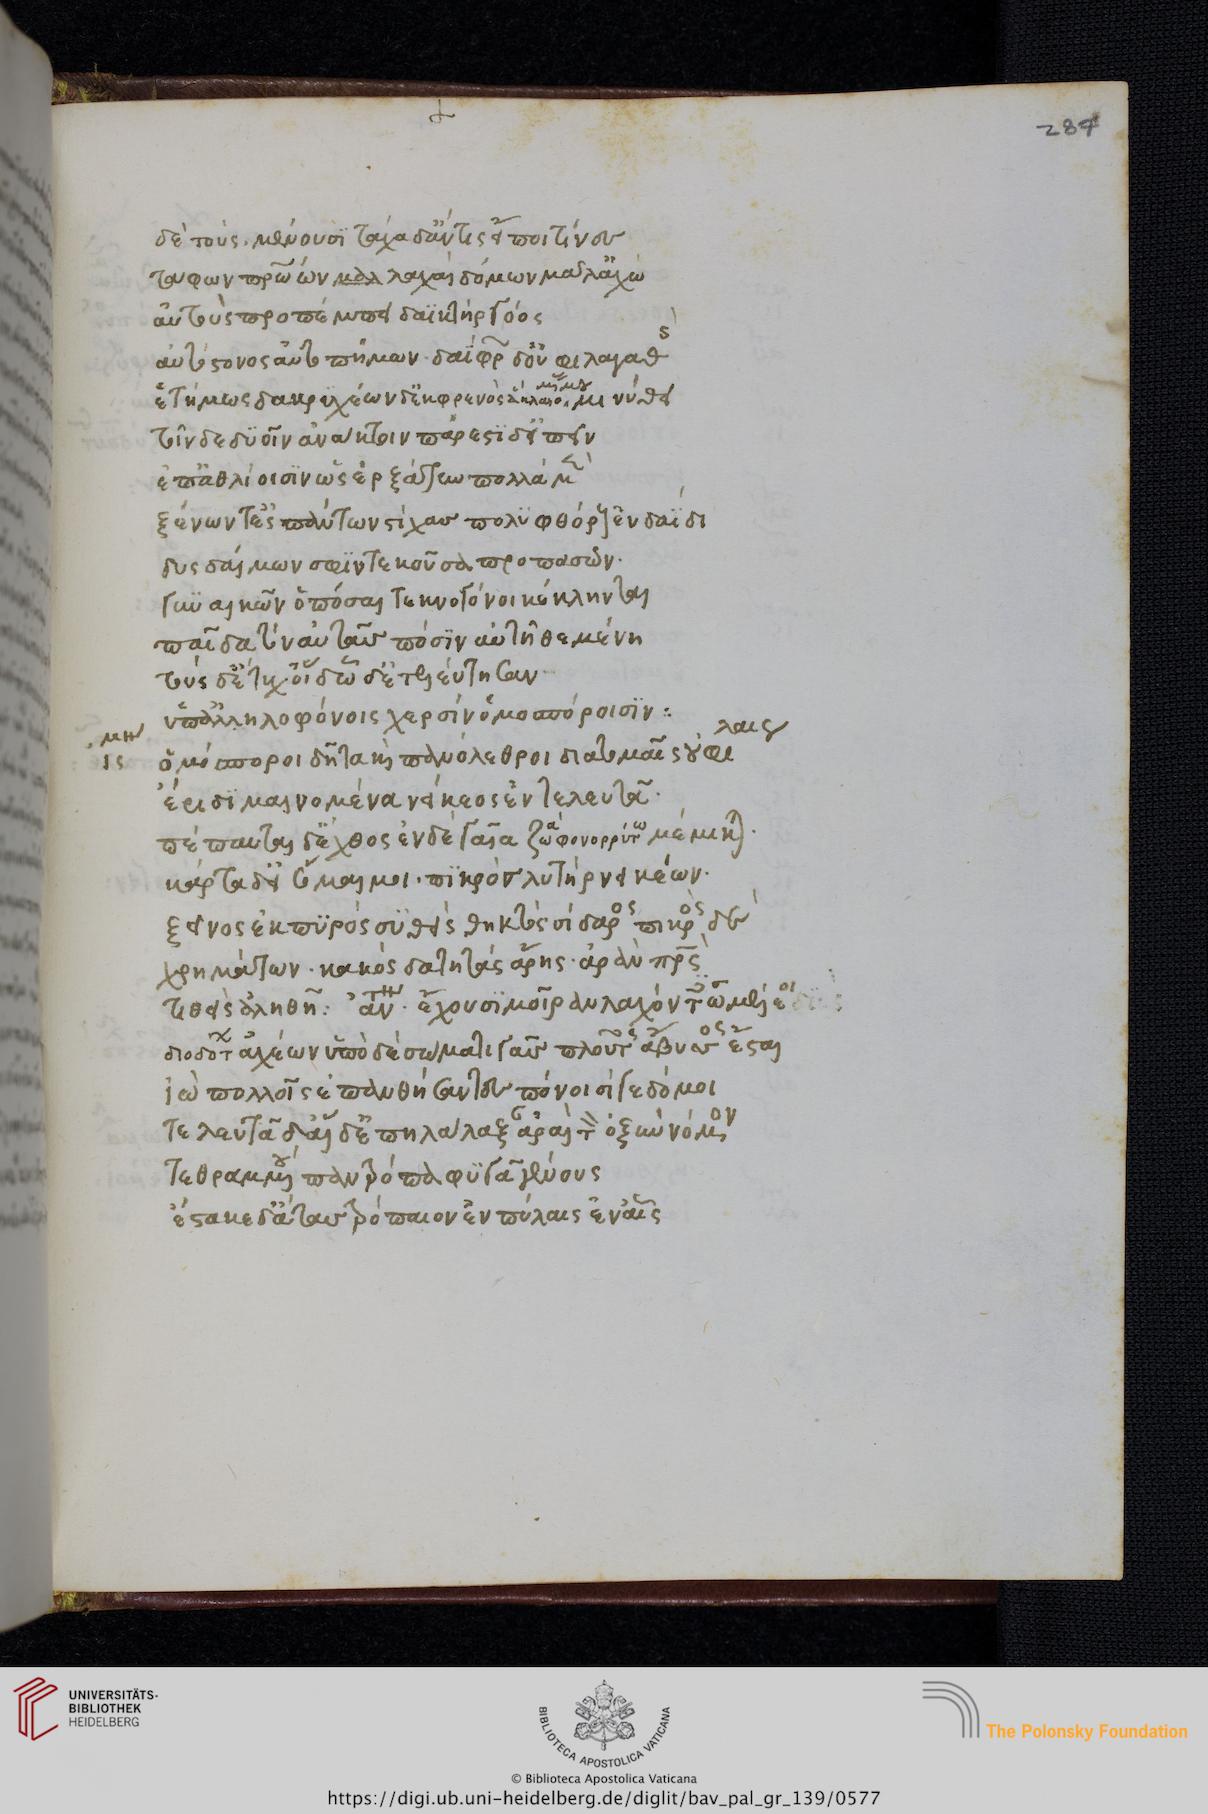 284
δὲ τοὺς. μένουσι τάχα δ' ἄν τις εἴποι τίν οὖν
τάφων πρώων λαχαὶ δόμων μάλ' ἀχὼ
αὐτοὺς προπέμπει δαϊκτὴρ γόος
αὐτόστονος αὐτοπήμων. δαΐφρων δ' οὐ φιλογαθὴς
ἐτύμως δακρυχέων δ' ἐκ φρενὸς μινύθει
τοῖνδε δυοῖν ἀνάκτοιν πάρεστι δ' εἰπεῖν
ἐπ' ἀθλίοισιν ὡς ἐρξάτην πολλὰ μὲν
ξένων τε πάντων στίχας πολυφθόρους ἐν δαΐδι
δυσδαίμων σφιν τεκοῦσα προπασῶν.
γυναικῶν ὁπόσαι τεκνογόνοι κέκληνται
παῖδα τὸν αὑτᾶς πόσιν αὑτῇ θεμένη
τούσδ' ἔτεχ' οἱ δ' ὧδ' ἐτελεύτησαν
ὑπ' ἀλληλοφόνοις χερσὶν ὁμοσπόροισιν:
ὁμόσποροι δῆτα καὶ πανόλεθροι διατομαῖς οὐ φι
λαις
ἔριδι μαινομένᾳ νείκεος ἐν τελευτᾷ.
πέπαυται δ' ἔχθος ἐν δὲ γαίᾳ ζωὰ φονορρύτω μέμικται.
κάρτα δ' εἴσ' ὅμαιμοι. πικρὸς λυτὴρ νεικέων.
ξεῖνος ἐκ πυρὸς συθεὶς θηκτὸς σίδαρος πικρὸς δὲ
χρημάτων. κακὸς δατητὰς ἄρης. ἀρὰν πατρὸς
τιθεὶς ἀληθῆ: ἔχουσι μοῖραν λαχόντες ὦ μέλεοι
διοδότων ἀχέων ὑπὸ δὲ σώματι γᾶς πλοῦτος ἄβυσσος ἔσται
ἰὼ πολλοῖς ἐπανθήσαντες πόνοισί γε δόμοι
τελευτᾷ δ' αἵδ' ἐπηλάλαξαν ἀραὶ τὸν ὀξὺν νόμον
τετραμμένου παντρόπῳ φυγᾷ γένους
ἕστακε δ' ἄτας τρόπαιον ἐν πύλαις ἐν αἷς
UNIVERSITÄTS-
BIBLIOTHEK
HEIDELBERG
BIBLIOTECA APOSTOLICA VATICANA
The Polonsky Foundation
© Biblioteca Apostolica Vaticana
https://digi.ub.uni-heidelberg.de/diglit/bav_pal_gr_139/0577